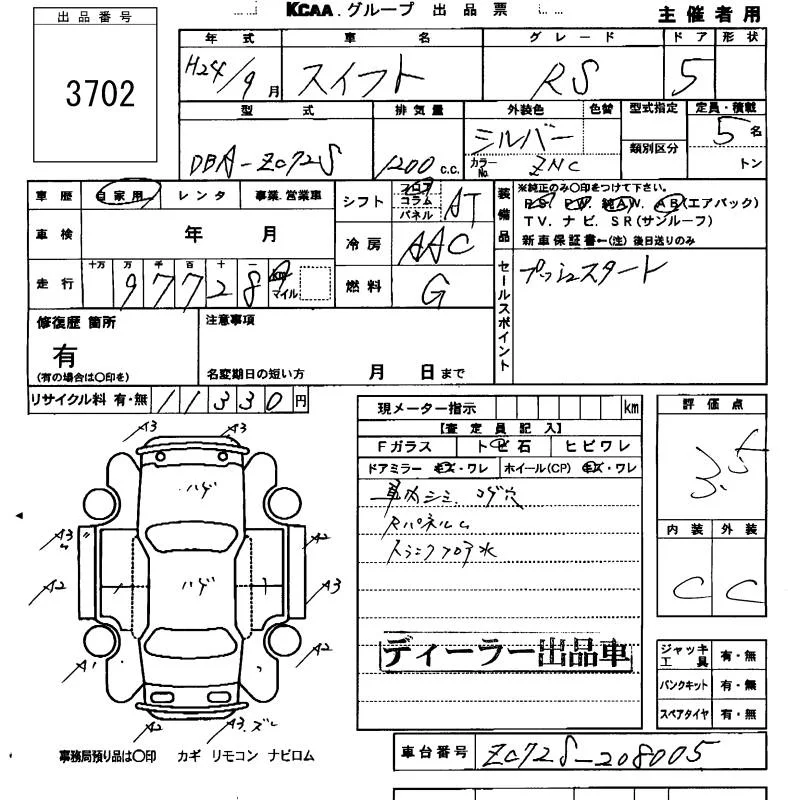 KCAA.グループ 出品票
主催者用
出品番号
3702
年式 車名 グレード ドア 形状
H24/9月 スイフト RS 5
型式 排気量 外装色 色替 型式指定 定員・積載
DBA-ZC72S 1200 c.c. シルバー 5名
カラーNo. ZNC 類別区分 トン
車歴 自家用 レンタ 事業.営業車
シフト フロア コラム パネル AT
装備品 ※純正のみ○印をつけて下さい。
P.S. P.W. 純A.W. A.B(エアバック)
T.V. ナビ. S.R(サンルーフ)
新車保証書←(注) 後日送りのみ
車検 年 月
冷房 AAC
走行 十万 万 千 百 十 一
97728 マイル
燃料 G
セールスポイント プッシュスタート
修復歴 箇所
有
(有の場合は○印を)
注意事項
名変期日の短い方 月 日まで
リサイクル料 有・無 11330円
現メーター指示 km
評価点
3.5
【査定員記入】
Fガラス トビ石 ヒビワレ
ドアミラー キズ・ワレ ホイール(CP) キズ・ワレ
車内シミ.コゲ穴
内装 外装
C C
A3 A3
ハゲ
A3 A2
ハゲ
A2 A3
A2
A1
A2 A3.ズレ
ディーラー出品車
ジャッキ工具 有・無
パンクキット 有・無
スペアタイヤ 有・無
事務局預り品は○印 カギ リモコン ナビロム
車台番号 ZC72S-208005